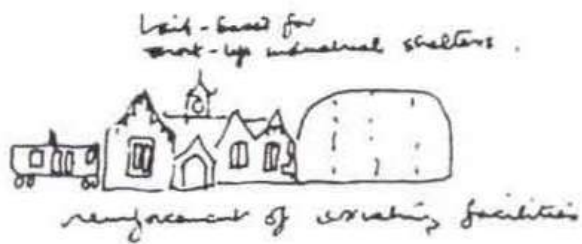 unit-based for
short-life industrial shelters.
reinforcement of existing facilities